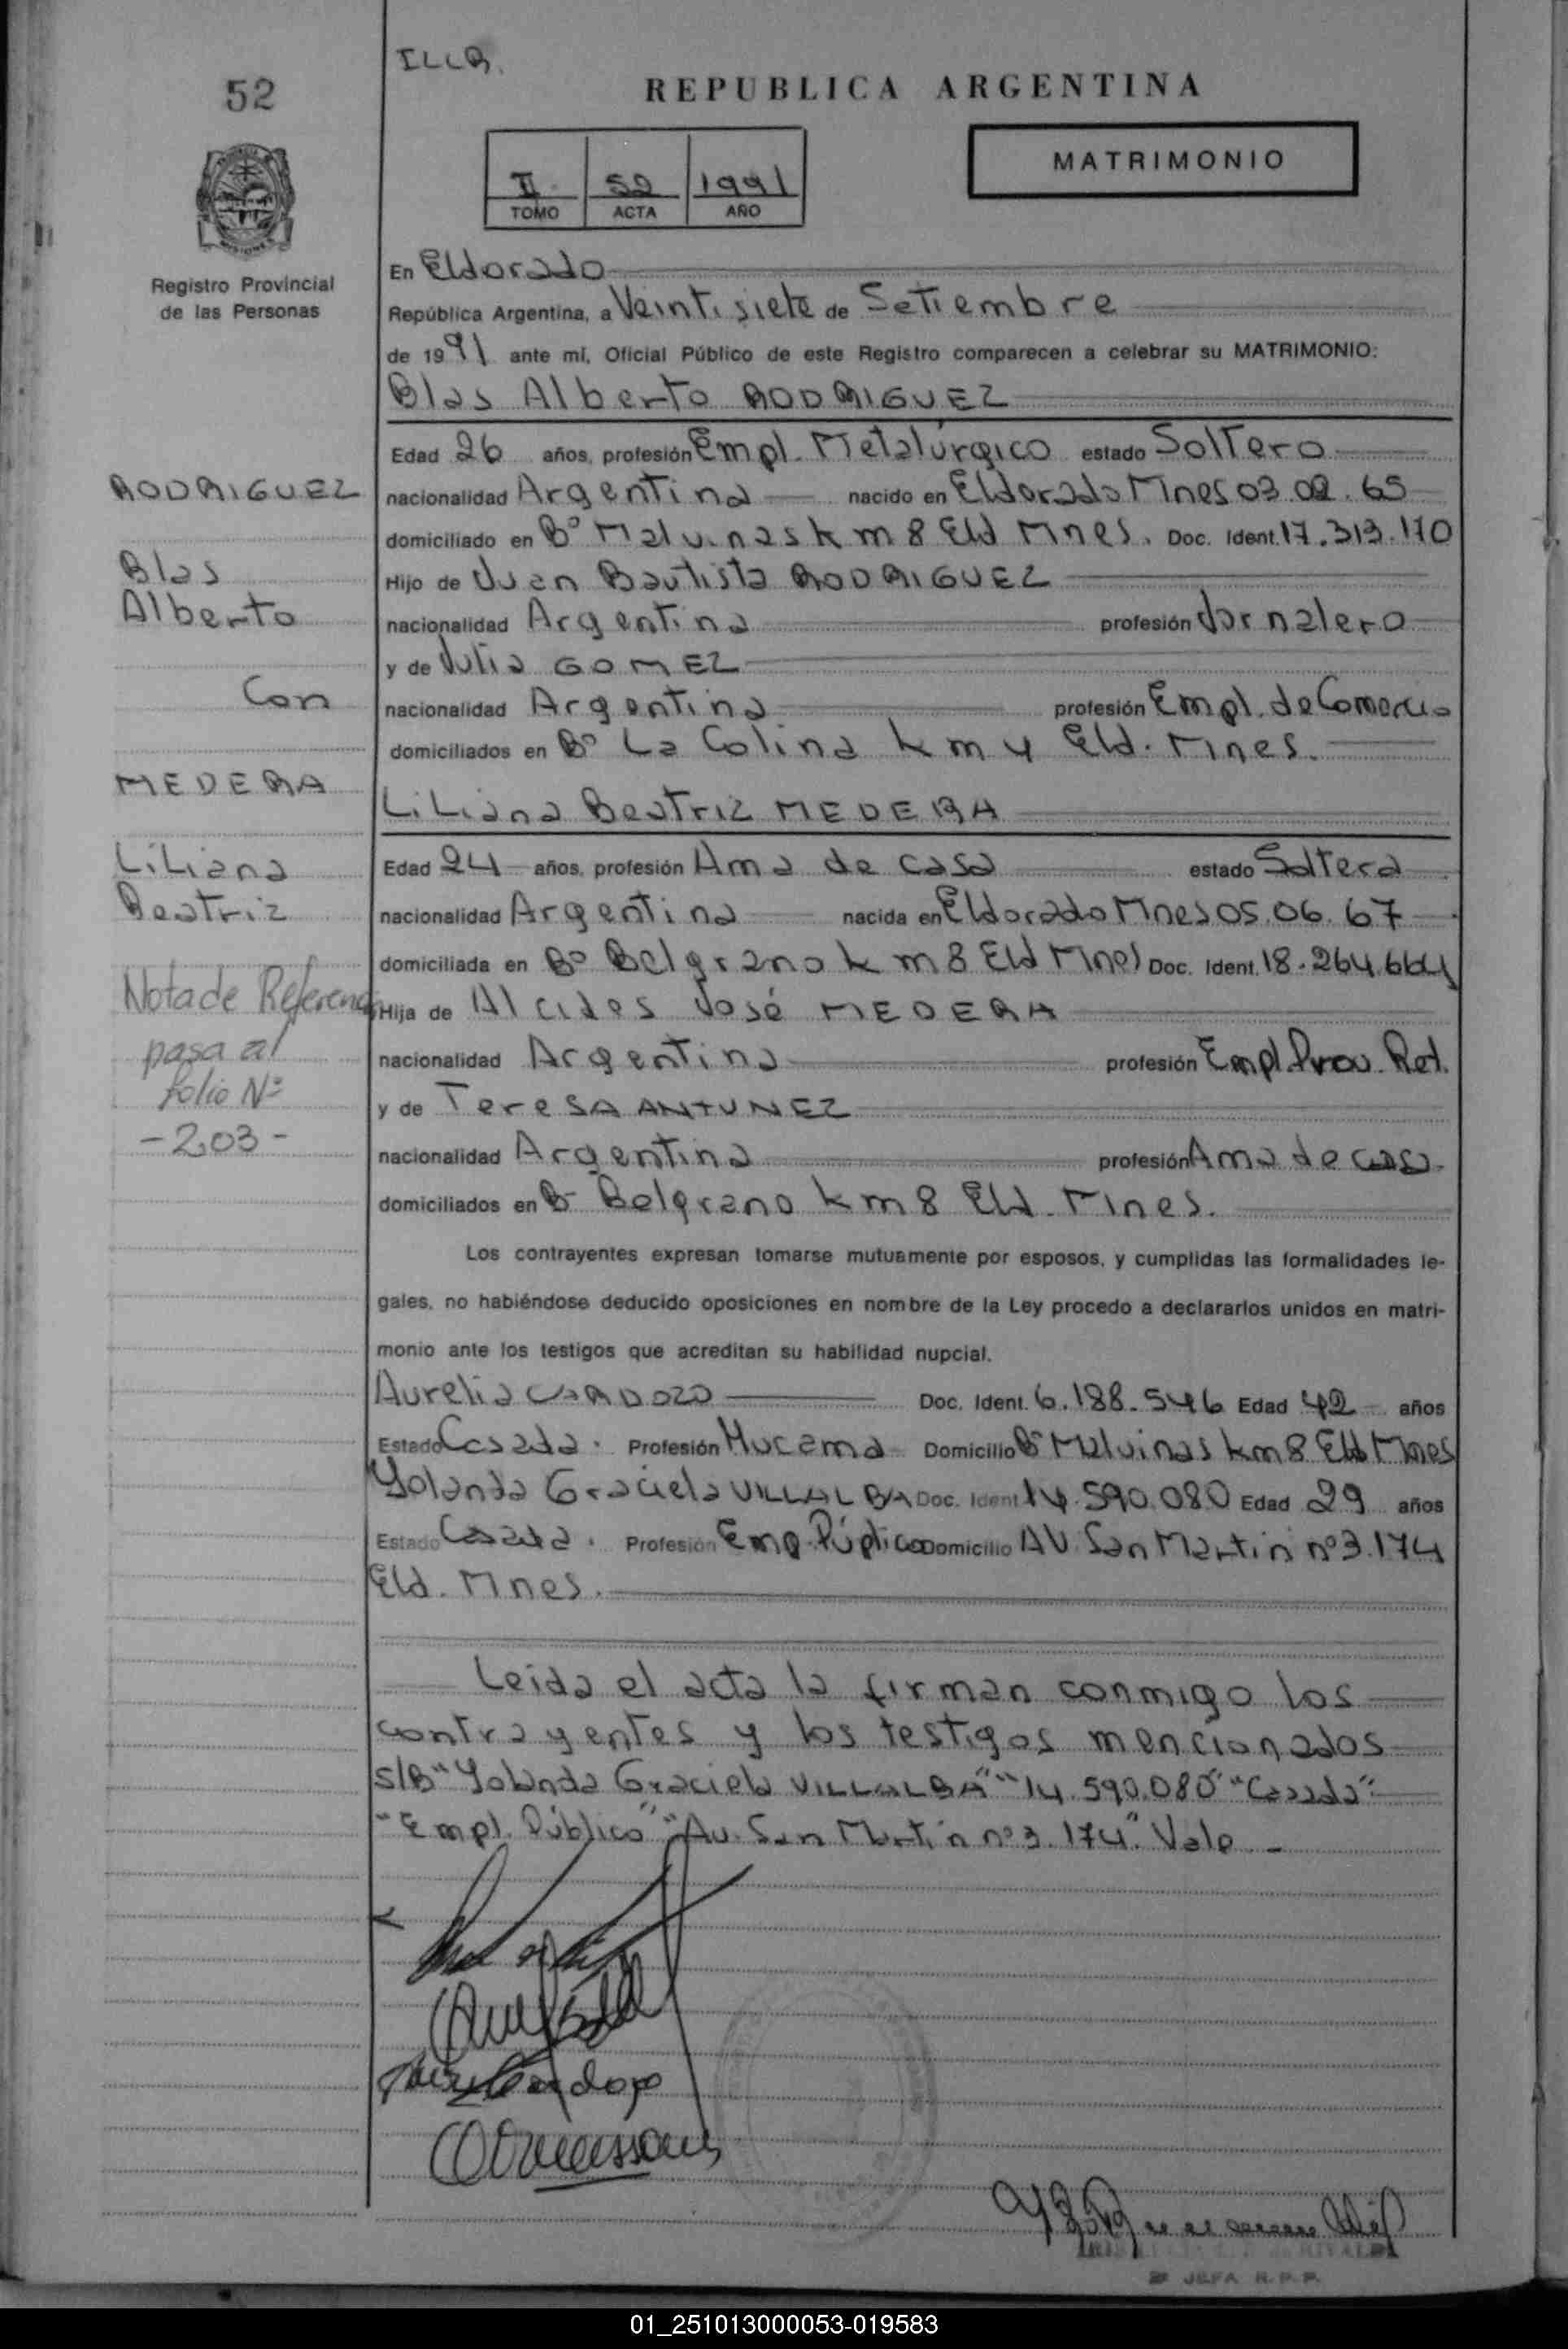 ILLB.
52
REPUBLICA ARGENTINA
MATRIMONIO
II 52 1991
TOMO ACTA AÑO
Registro Provincial
de las Personas
En Eldorado
República Argentina, a Veintisiete de Setiembre
de 1991 ante mí, Oficial Público de este Registro comparecen a celebrar su MATRIMONIO:
Blas Alberto RODRIGUEZ
Edad 26 años, profesión Empl. Metalúrgico estado Soltero
nacionalidad Argentina nacido en Eldorado Mnes 03.02.65
domiciliado en Bº Malvinas km 8 Eld Mnes. Doc. Ident. 17.313.170
Hijo de Juan Bautista RODRIGUEZ
nacionalidad Argentina profesión Jornalero
y de Julia GOMEZ
nacionalidad Argentina profesión Empl. de Comercio
domiciliados en Bº La Colina km 4 Eld. Mnes.
Liliana Beatriz MEDERA
Edad 24 años, profesión Ama de casa estado Soltera
nacionalidad Argentina nacida en Eldorado Mnes 05.06.67
domiciliada en Bº Belgrano km 8 Eld Mnes Doc. Ident. 18.264.664
Hija de Alcides José MEDERA
nacionalidad Argentina profesión Empl. Prov. Ret.
y de Teresa ANTUNEZ
nacionalidad Argentina profesión Ama de casa.
domiciliados en Bº Belgrano km 8 Eld. Mnes.
RODRIGUEZ
Blas
Alberto
Con
MEDERA
Liliana
Beatriz
Nota de Referencia
pasa al
folio Nº
-203-
Los contrayentes expresan tomarse mutuamente por esposos, y cumplidas las formalidades le-
gales, no habiéndose deducido oposiciones en nombre de la Ley procedo a declararlos unidos en matri-
monio ante los testigos que acreditan su habilidad nupcial.
Aurelia CARDOZO Doc. Ident. 6.188.546 Edad 42 años
Estado Casada. Profesión Mucama Domicilio Bº Malvinas km 8 Eld Mnes
Yolanda Graciela VILLALBA Doc. Ident 14.590.080 Edad 29 años
Estado Casada. Profesión Emp. Público Domicilio AV. San Martin nº 3.174
Eld. Mnes.
Leida el acta la firman conmigo los
contrayentes y los testigos mencionados
S/B "Yolanda Graciela VILLALBA" "14.590.080" "Casada"
"Empl. Público" "Av. San Martin nº 3.174". Vale
JEFA R.P.P.
01_251013000053-019583